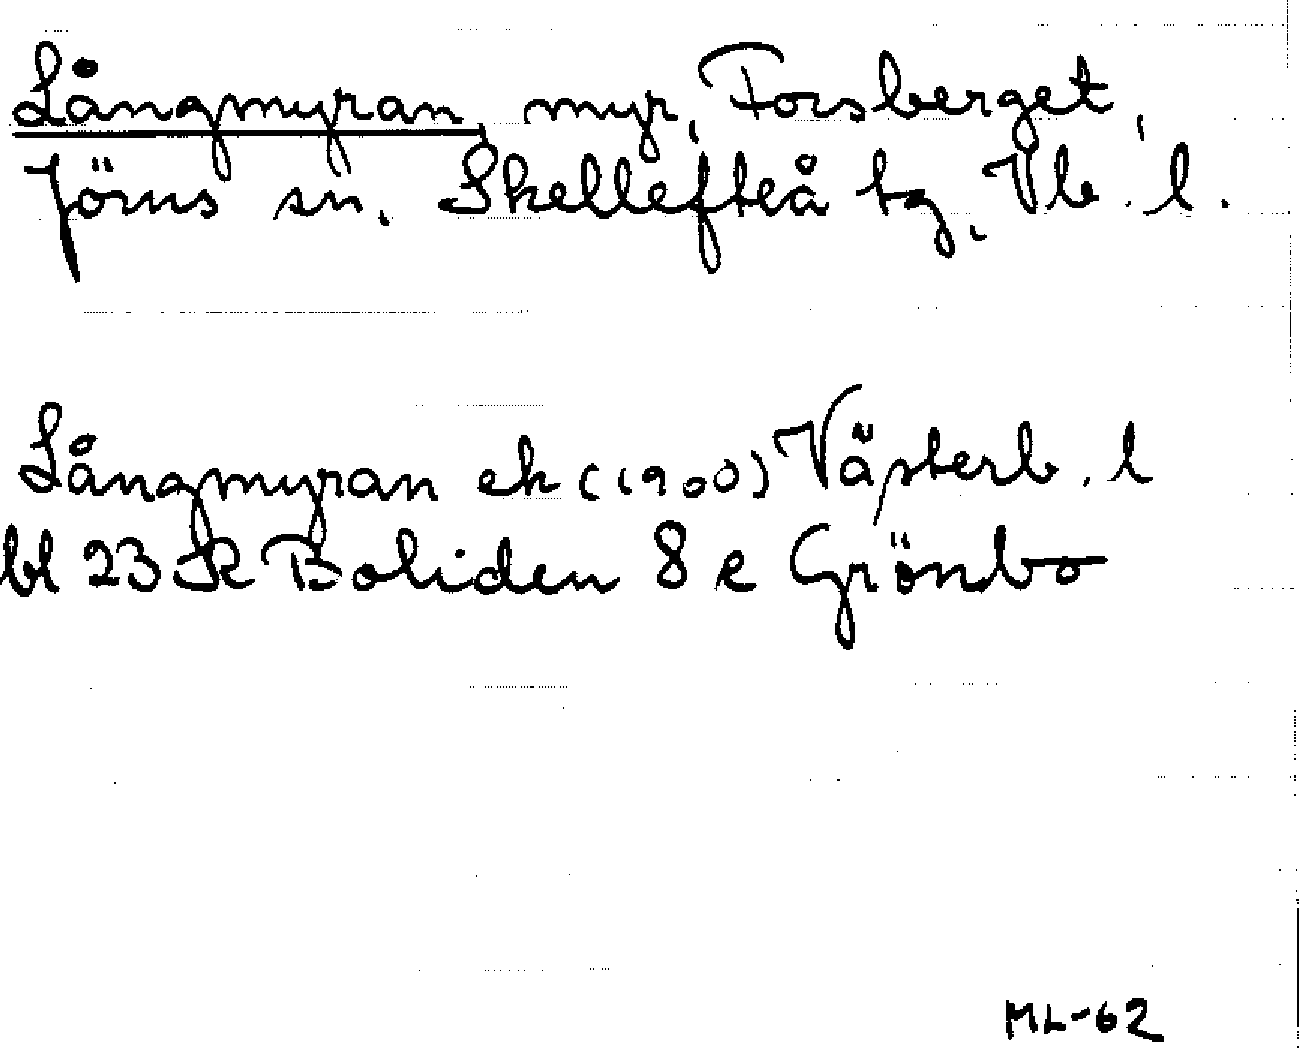 Långmyran, myr, Forsberget,
Jörns sn, Skellefteå tg, Vb. l.
Långmyran ek (1900) Västerb. l
bl 23 K Boliden 8 e Grönbo
ML-62